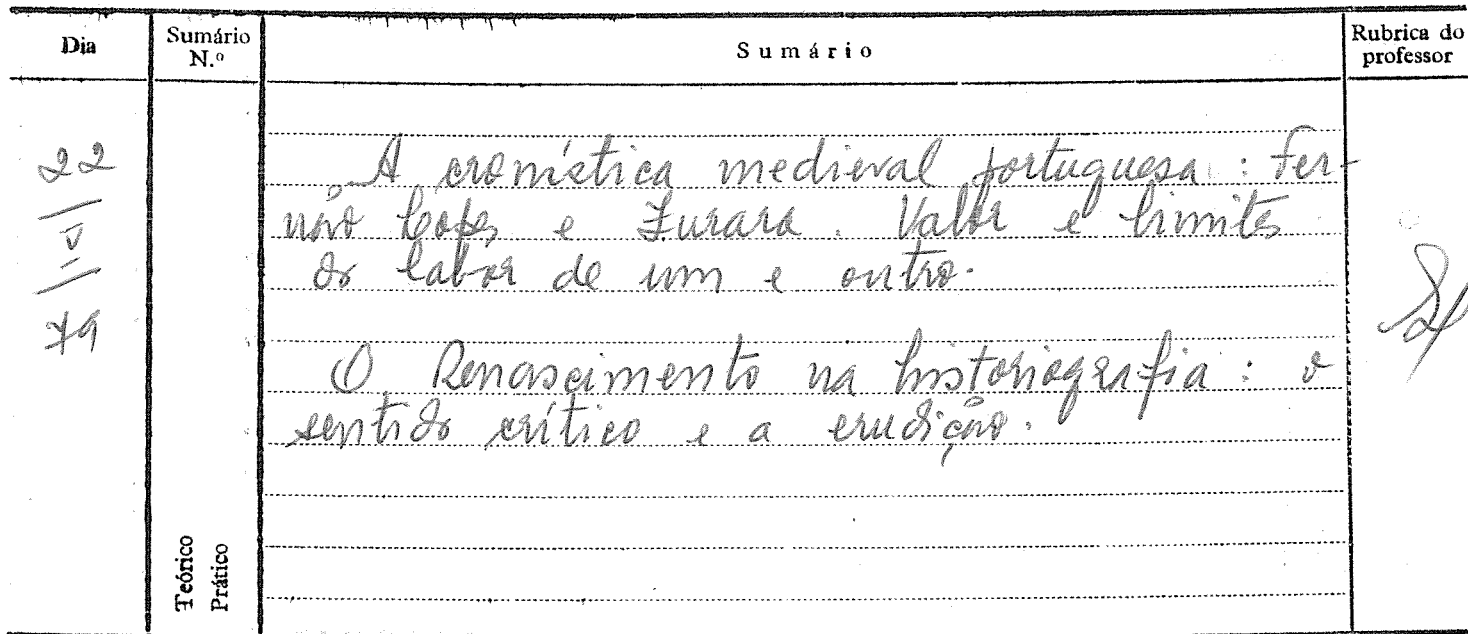 Dia
Sumário N.º
Sumário
Rubrica do professor
22
V
79
A cronística medieval portuguesa: Fer-
não Lopes e Zurara. Valor e limites
do labor de um e outro.
O Renascimento na historiografia: o
sentido crítico e a erudição.
Teórico
Prático